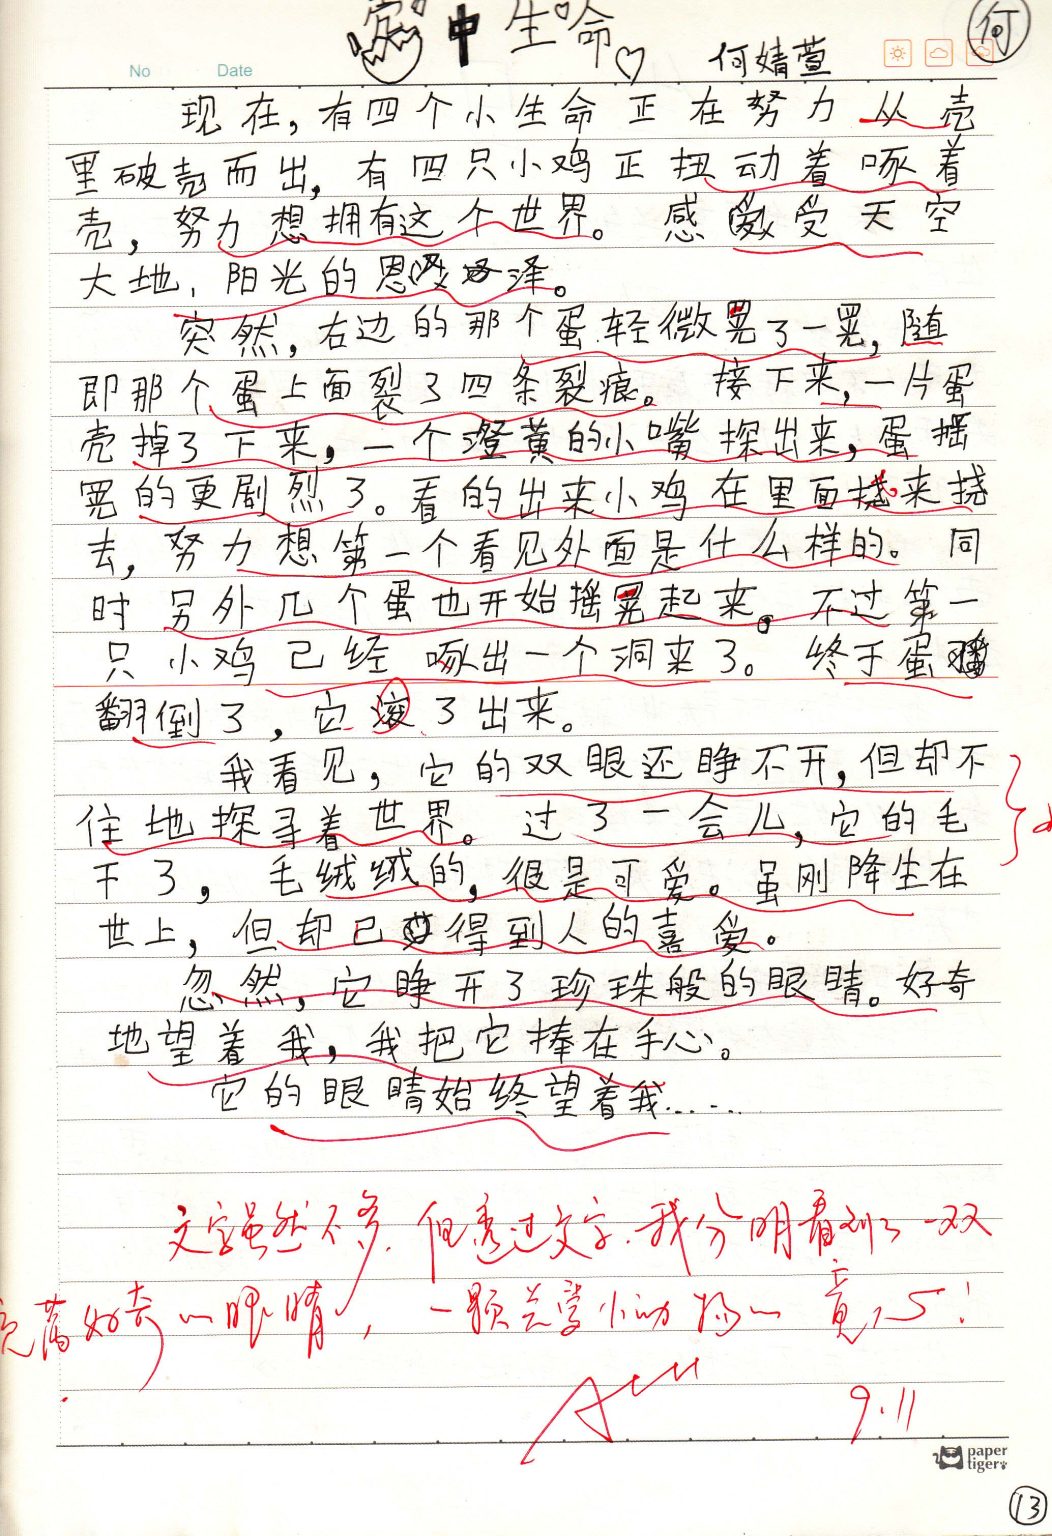 壳中生命
何婧萱
何
No Date
现在，有四个小生命正在努力从壳
里破壳而出，有四只小鸡正扭动着啄着
壳，努力想拥有这个世界。感受天空
大地，阳光的恩泽。
突然，右边的那个蛋轻微晃了一晃，随
即那个蛋上面裂了四条裂痕。接下来，一片蛋
壳掉了下来，一个澄黄的小嘴探出来，蛋摇
晃的更剧烈了。看的出来小鸡在里面挠来挠
去，努力想第一个看见外面是什么样的。同
时另外几个蛋也开始摇晃起来。不过第一
只小鸡已经啄出一个洞来了。终于蛋
翻倒了，它滚了出来。
我看见，它的双眼还睁不开，但却不
住地探寻着世界。过了一会儿，它的毛
干了，毛绒绒的，很是可爱。虽刚降生在
世上，但却已得到人的喜爱。
忽然，它睁开了珍珠般的眼睛。好奇
地望着我，我把它捧在手心。
它的眼睛始终望着我……
文字虽然不多，但透过文字，我分明看到了一双
充满好奇的眼睛，一颗关爱小动物的童心！
9.11
paper
tiger
13